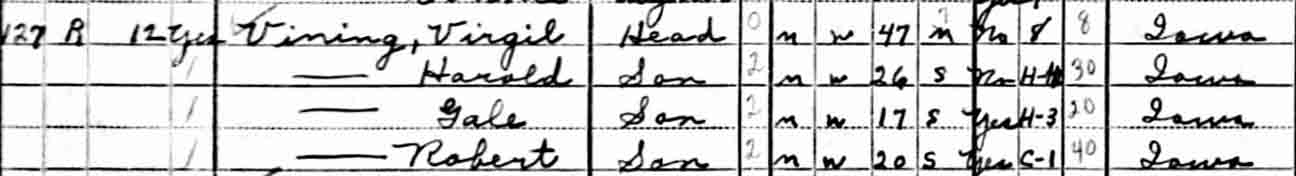 127 R 12 Yes Vining, Virgil Head 0 m w 47 m 7 No 8 8 Iowa
1 — Harold Son 2 m w 26 s No H-4 30 Iowa
1 — Gale Son 2 m w 17 s Yes H-3 20 Iowa
1 — Robert Son 2 m w 20 s Yes C-1 40 Iowa